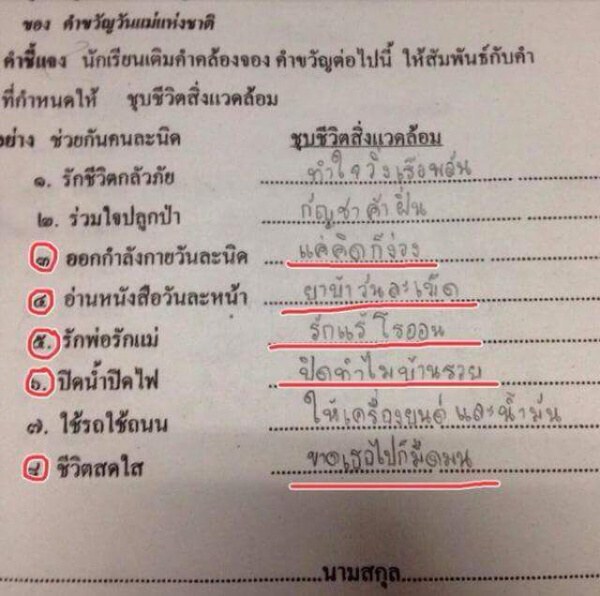 ของ คำขวัญวันแม่แห่งชาติ
คำชี้แจง นักเรียนเติมคำคล้องจอง คำขวัญต่อไปนี้ ให้สัมพันธ์กับคำ
ที่กำหนดให้ ชุบชีวิตสิ่งแวดล้อม
อย่าง ช่วยกันคนละนิด ชุบชีวิตสิ่งแวดล้อม
๑. รักชีวิตกลัวภัย ทำใจวิ่ง
๒. ร่วมใจปลูกป่า กัญชาค้าฝิ่น
๓ ออกกำลังกายวันละนิด แค่คิดก็ง่วง
๔ อ่านหนังสือวันละหน้า ยาบ้าวันละเม็ด
๕. รักพ่อรักแม่ รักแร้ โรออน
๖. ปิดน้ำปิดไฟ ปิดทำไมบ้านรวย
๗. ใช้รถใช้ถนน ให้เครื่องยนต์ และน้ำมัน
๘ ชีวิตสดใส ขาดเธอไปก็มืดมน
นามสกุล